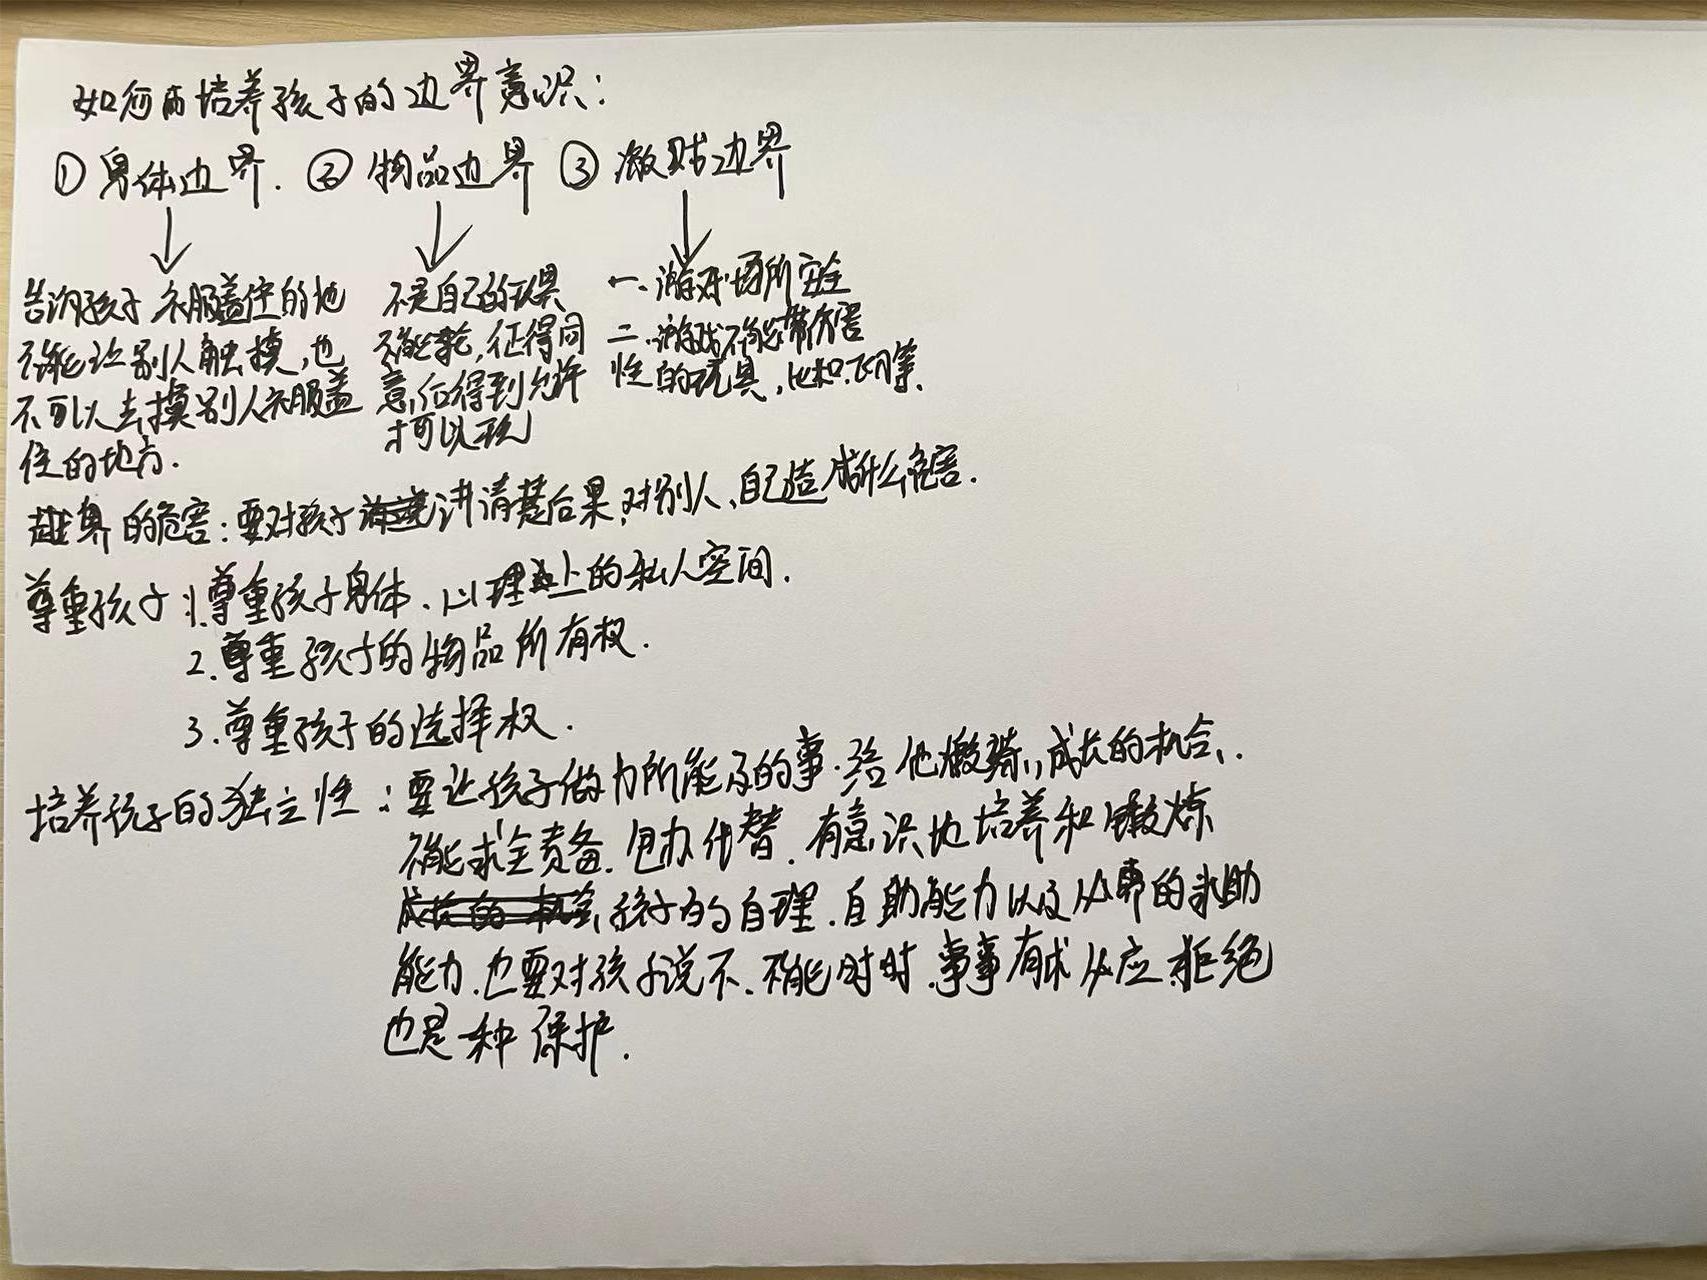 如何培养孩子的边界意识：
①身体边界. ②物品边界 ③游戏边界
告诉孩子衣服盖住的地
不能让别人触摸,也
不可以去摸别人衣服盖
住的地方.
不是自己的玩具
不能拿,征得同
意,后得到允许
才可以玩
一.游戏场所安全
二.游戏不能带伤害
性的玩具,比如飞刀等.
越界的危害:要对孩子讲清楚后果,对别人、自己造成什么危害.
尊重孩子:1.尊重孩子身体、心理上的私人空间.
2.尊重孩子的物品所有权.
3.尊重孩子的选择权.
培养孩子的独立性:要让孩子做力所能及的事.给他锻炼,成长的机会.
不能求全责备.包办代替.有意识地培养和锻炼
孩子的自理.自助能力以及必要的求助
能力.也要对孩子说不.不能时时.事事有求必应.拒绝
也是一种保护.